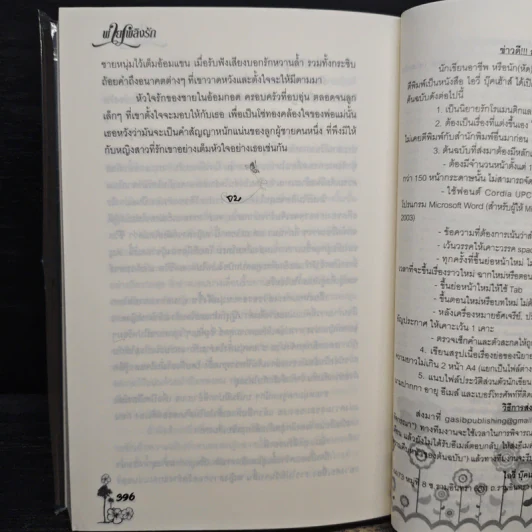 พ่ายเพลิงรัก
ชายหนุ่มไว้เต็มอ้อมแขน เมื่อรับฟังเสียงบอกรักหวานล้ำ รวมทั้งกระซิบ
ถ้อยคำถึงอนาคตต่างๆ ที่เขาวาดหวังและตั้งใจจะให้มีตามมา
หัวใจรักของชายในอ้อมกอด ครอบครัวที่อบอุ่น ตลอดจนลูก
เล็กๆ ที่เขาตั้งใจจะมอบให้กับเธอ เพื่อเป็นโซ่ทองคล้องใจของพ่อแม่นั้น
เธอหวังว่ามันจะเป็นคำสัญญาหนักแน่นของลูกผู้ชายคนหนึ่ง ที่พึงมีให้
กับหญิงสาวที่รักเขาอย่างเต็มหัวใจอย่างเธอเช่นกัน
396
ข่าวดี!!!
นักเขียนอาชีพ หรือนัก(หัด)
ตีพิมพ์เป็นหนังสือ ไอวี่ บุ๊คเฮ้าส์ ได้เปิ
ต้นฉบับดังต่อไปนี้
1. เป็นนิยายรักโรแมนติกแ
2. ต้องเป็นเรื่องที่แต่งขึ้นเอง
ไม่เคยตีพิมพ์กับสำนักพิมพ์อื่นมาก่อน
3. ต้นฉบับที่ส่งมาต้องมีหลัก
- ต้องมีจำนวนหน้าตั้งแต่ 1
กว่า 150 หน้ากระดาษนั้น ไม่สามารถจัด
- ใช้ฟอนต์ Cordia UPC
โปรแกรม Microsoft Word (สำหรับผู้ใช้ Mi
2003)
- ข้อความที่ต้องการเน้นว่าสำ
- เว้นวรรคให้เคาะวรรค spac
- ทุกครั้งที่ขึ้นย่อหน้าใหม่ ไม่
เวลาที่จะขึ้นเรื่องราวใหม่ ฉากใหม่หรือตอน
- ขึ้นย่อหน้าใหม่ให้ใช้ Tab
- ขึ้นตอนใหม่หรือบทใหม่ ไม่ต้
- หลังเครื่องหมายอัศเจรีย์, ปรั
สัญประกาศ ให้เคาะเว้น 1 เคาะ
- ตรวจเช็กคำและตัวสะกดให้ถู
4. เขียนสรุปเนื้อเรื่องย่อของนิยาย
ความยาวไม่เกิน 2 หน้า A4 (แยกเป็นไฟล์ต่าง
5. แนบไฟล์ประวัติส่วนตัวนักเขียน
นามปากกา อายุ อีเมล์ และเบอร์โทรศัพท์ที่ติด
วิธีการส่ง
ส่งมาที่ gasibpublishing@gmail
ทางทีมงานจะใช้เวลาในการพิจารณ